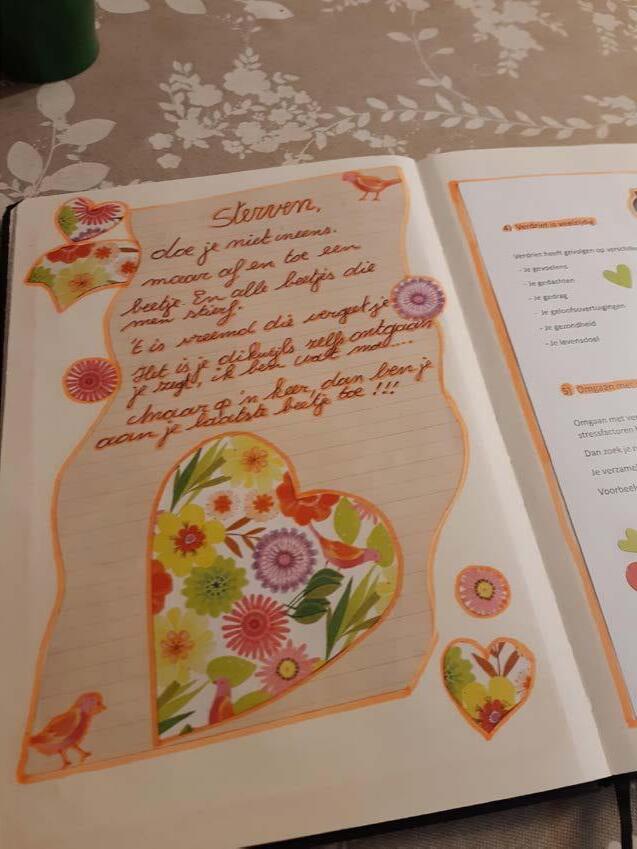 Sterven,
doe je niet ineens.
maar af en toe een
beetje. En alle beetjes die
men stierf.
't is vreemd die vergeet je
Het is je dikwijls zelfs ontgaan
je zegt, ik ben wat moe...
maar op 'n keer, dan ben je
aan je laatste beetje toe !!!
4) Verdriet is veelzijdig
Verdriet heeft gevolgen op
- Je gevoelens
- Je gedachten
- Je gedrag
- Je geloofsovertuigingen
- Je gezondheid
- Je levensdoel
5) Omgaan
Omgaan met
stressfactoren
Dan zoek je
Je